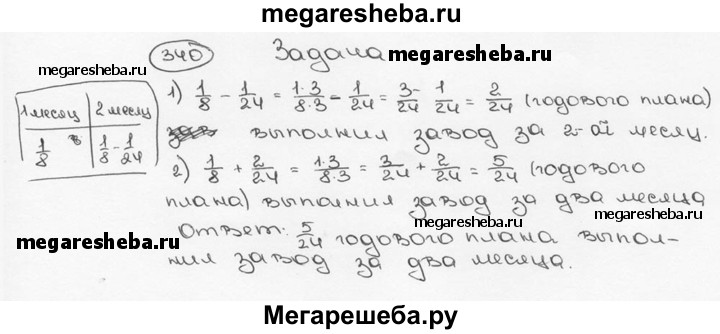 megaresheba.ru
340 Задача megaresheba.ru
megaresheba.ru
1) 1/8 - 1/24 = 1·3/8·3 - 1/24 = 3/24 - 1/24 = 2/24 (годового плана)
1 месяц 2 месяц
1/8 1/8 - 1/24
выполнил завод за 2-ой месяц.
2) 1/8 + 2/24 = 1·3/8·3 = 3/24 + 2/24 = 5/24 (годового
плана) выполнил завод за два месяца
megaresheba.ru
megaresheba.ru
Ответ: 5/24 годового плана выпол-
нил завод за два месяца.
Мегарешеба.ру